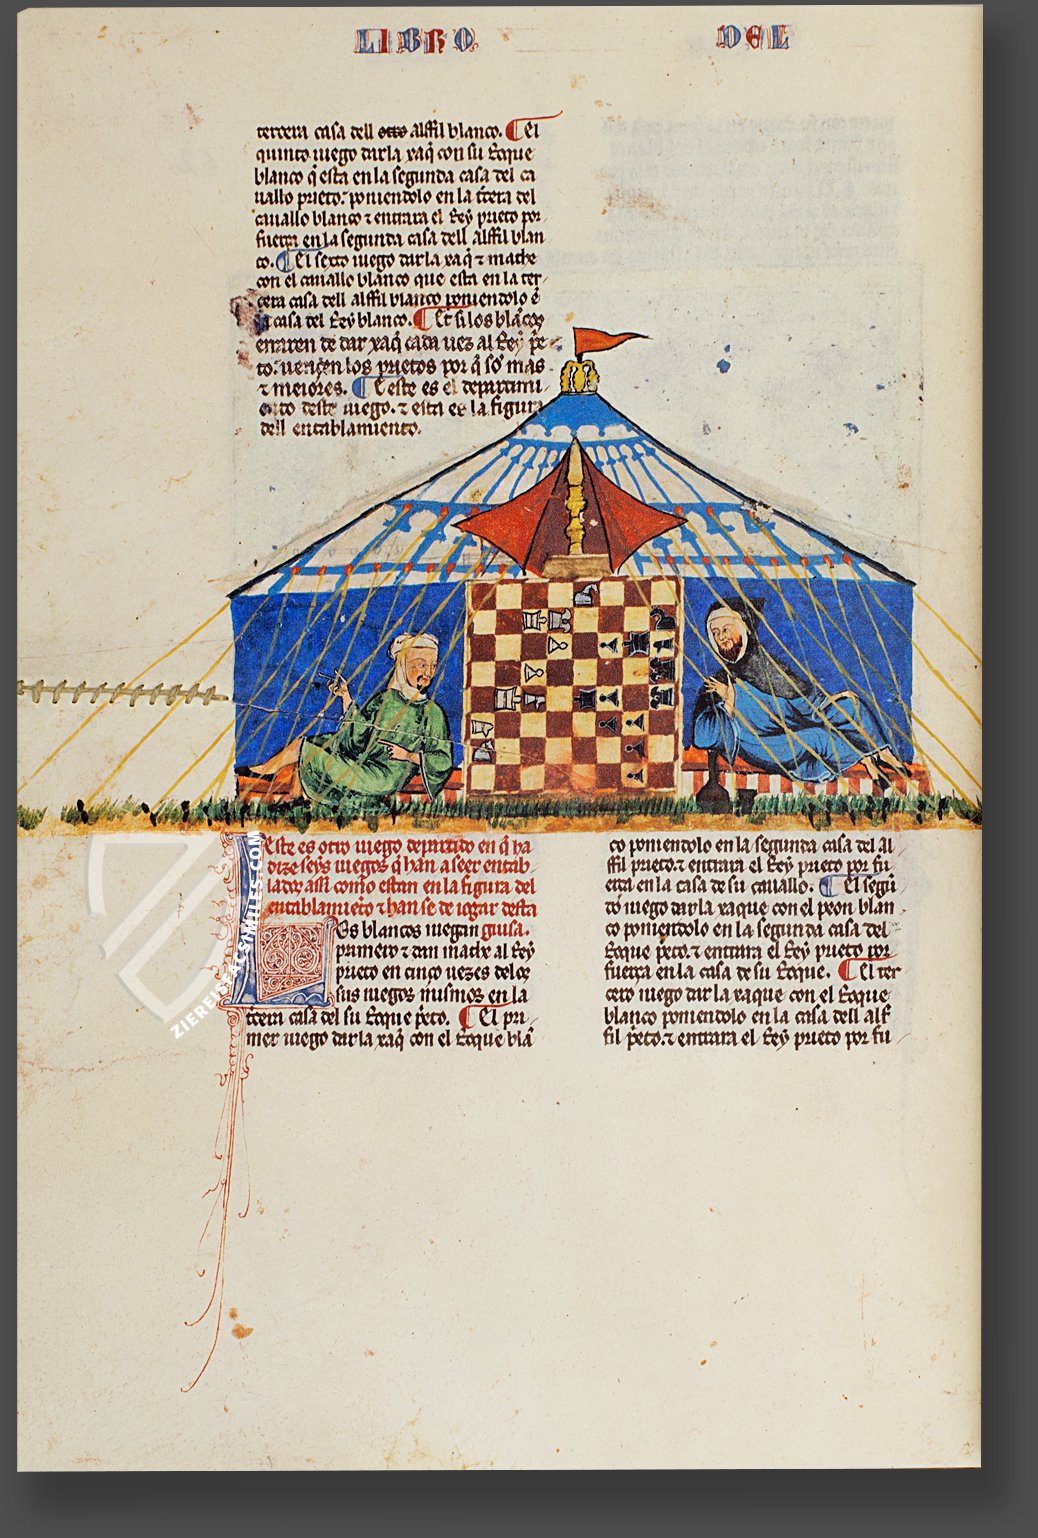 LIBRO DEL
tercera casa dell alffil blanco. El
quinto iuego dar la xaq̃ con su Roque
blanco q̃ esta en la segunda casa del ca
uallo prieto. poniendolo en la t̃cera del
cauallo blanco ⁊ entrara el Rey prieto por
fuerça en la segunda casa dell alffil blan
co. El sexto iuego dar la xaq̃ ⁊ mathe
con el cauallo blanco que esta en la ter
cera casa dell alffil blanco poniendolo ẽ
casa del Rey blanco. Et si los blãcos
erraren de dar xaq̃ cada uez al Rey p̃e
to. uençen los prietos por q̃ sõ mas
⁊ meiores. E este es el departimi
ento deste iuego. ⁊ esta es la figura
dell entablamiento.
Este es otro iuego departido en q̃ ha
dize seys iuegos q̃ han a seer entab
lados assi como estan en la figura del
entablamiẽto ⁊ han se de iogar desta
Los blancos iuegan guisa.
primero ⁊ dan mathe al Rey
prieto en cinco uezes delos
sus iuegos mismos en la
t̃cera casa del su Roque p̃eto. El pri
mer iuego dar la xaq̃ con el Roque blã
co poniendolo en la segunda casa del al
ffil prieto. ⁊ entrara el Rey prieto por fu
erça en la casa de su cauallo. El segũ
do iuego dar la xaque con el peon blan
co poniendolo en la segunda casa del
Roque p̃eto. ⁊ entrara el Rey prieto por
fuerça en la casa de su Roque. El ter
cero iuego dar la xaque con el Roque
blanco poniendolo en la casa dell alf
fil p̃eto. ⁊ entrara el Rey prieto por fu
ZIEREISFACSIMILES.COM